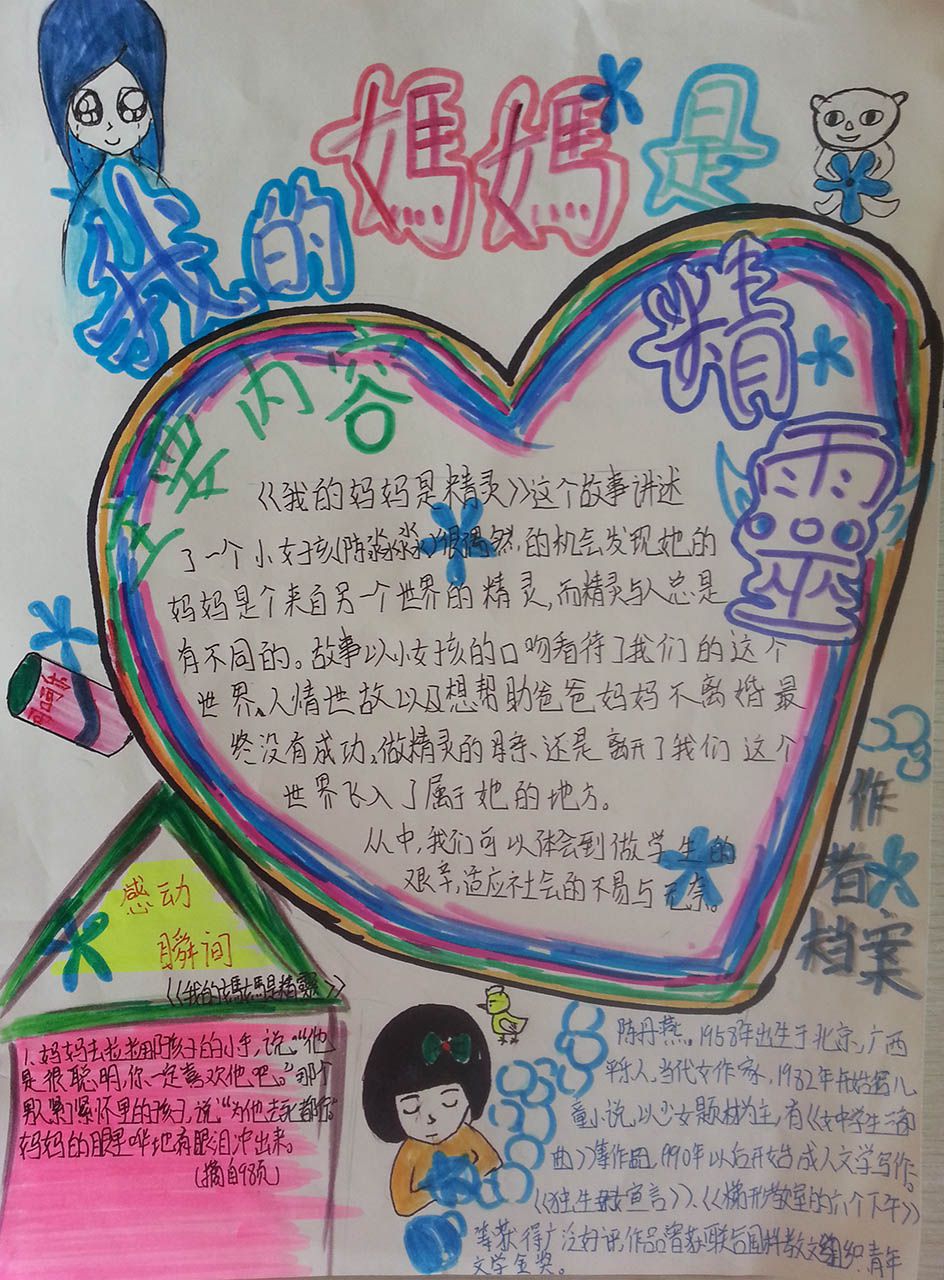 我的媽媽是
精靈
主要内容
《我的妈妈是精灵》这个故事讲述
了一个小女孩(陈淼淼)很偶然,的机会发现她的
妈妈是个来自另一个世界的精灵,而精灵与人总是
有不同的。故事以小女孩的口吻看待了我们的这个
世界、人情世故以及想帮助爸爸妈妈不离婚最
终没有成功、做精灵的母亲、还是离开了我们这个
世界飞入了属于她的地方。
从中,我们可以体会到做学生的
艰辛,适应社会的不易与无奈。
作者
档案
感动
瞬间
《我的媽媽是精靈》
1.妈妈去拉那孩子的小手,说:“他
是很聪明,你一定喜欢他吧。”那个
男人紧怀里的孩子,说“为他去死都行”
妈妈的眼里哗地有眼泪冲出来。
(摘自98页)
陈丹燕。1958年出生于北京、广西
平乐人,当代女作家、1982年开始写儿
童小说,以少女题材为主,有《女中学生三部
曲》等作品,1990年以后开始成人文学写作。
《独生子女宣言》、《梯形教室的六个下午》
等获得广泛好评,作品曾获联合国科教文组织青年
文学金奖。